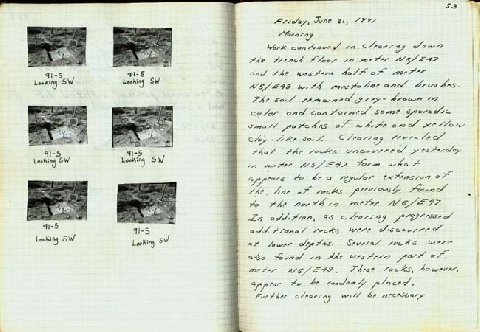 91-5
Looking SW
91-5
Looking SW
91-5
Looking SW
91-5
Looking SW
91-5
Looking SW
91-5
Looking SW
53
Friday, June 21, 1991
Morning
Work continued in clearing down
the trench floor in meter N5/E43
and the western half of meter
N5/E48 with mestolas and brushes.
The soil remained grey-brown in
color and contained some sporadic
small patches of white and yellow
clay like soil. Clearing revealed
that the rocks uncovered yesterday
in meter N5/E43 form what
appears to be a regular extension of
the line of rocks previously found
to the north in meter N6/E47
In addition, as clearing progressed
additional rocks were discovered
at lower depths. Several rocks were
also found in the western part of
meter N5/E48. These rocks, however,
appear to be randomly placed.
Further clearing will be necessary